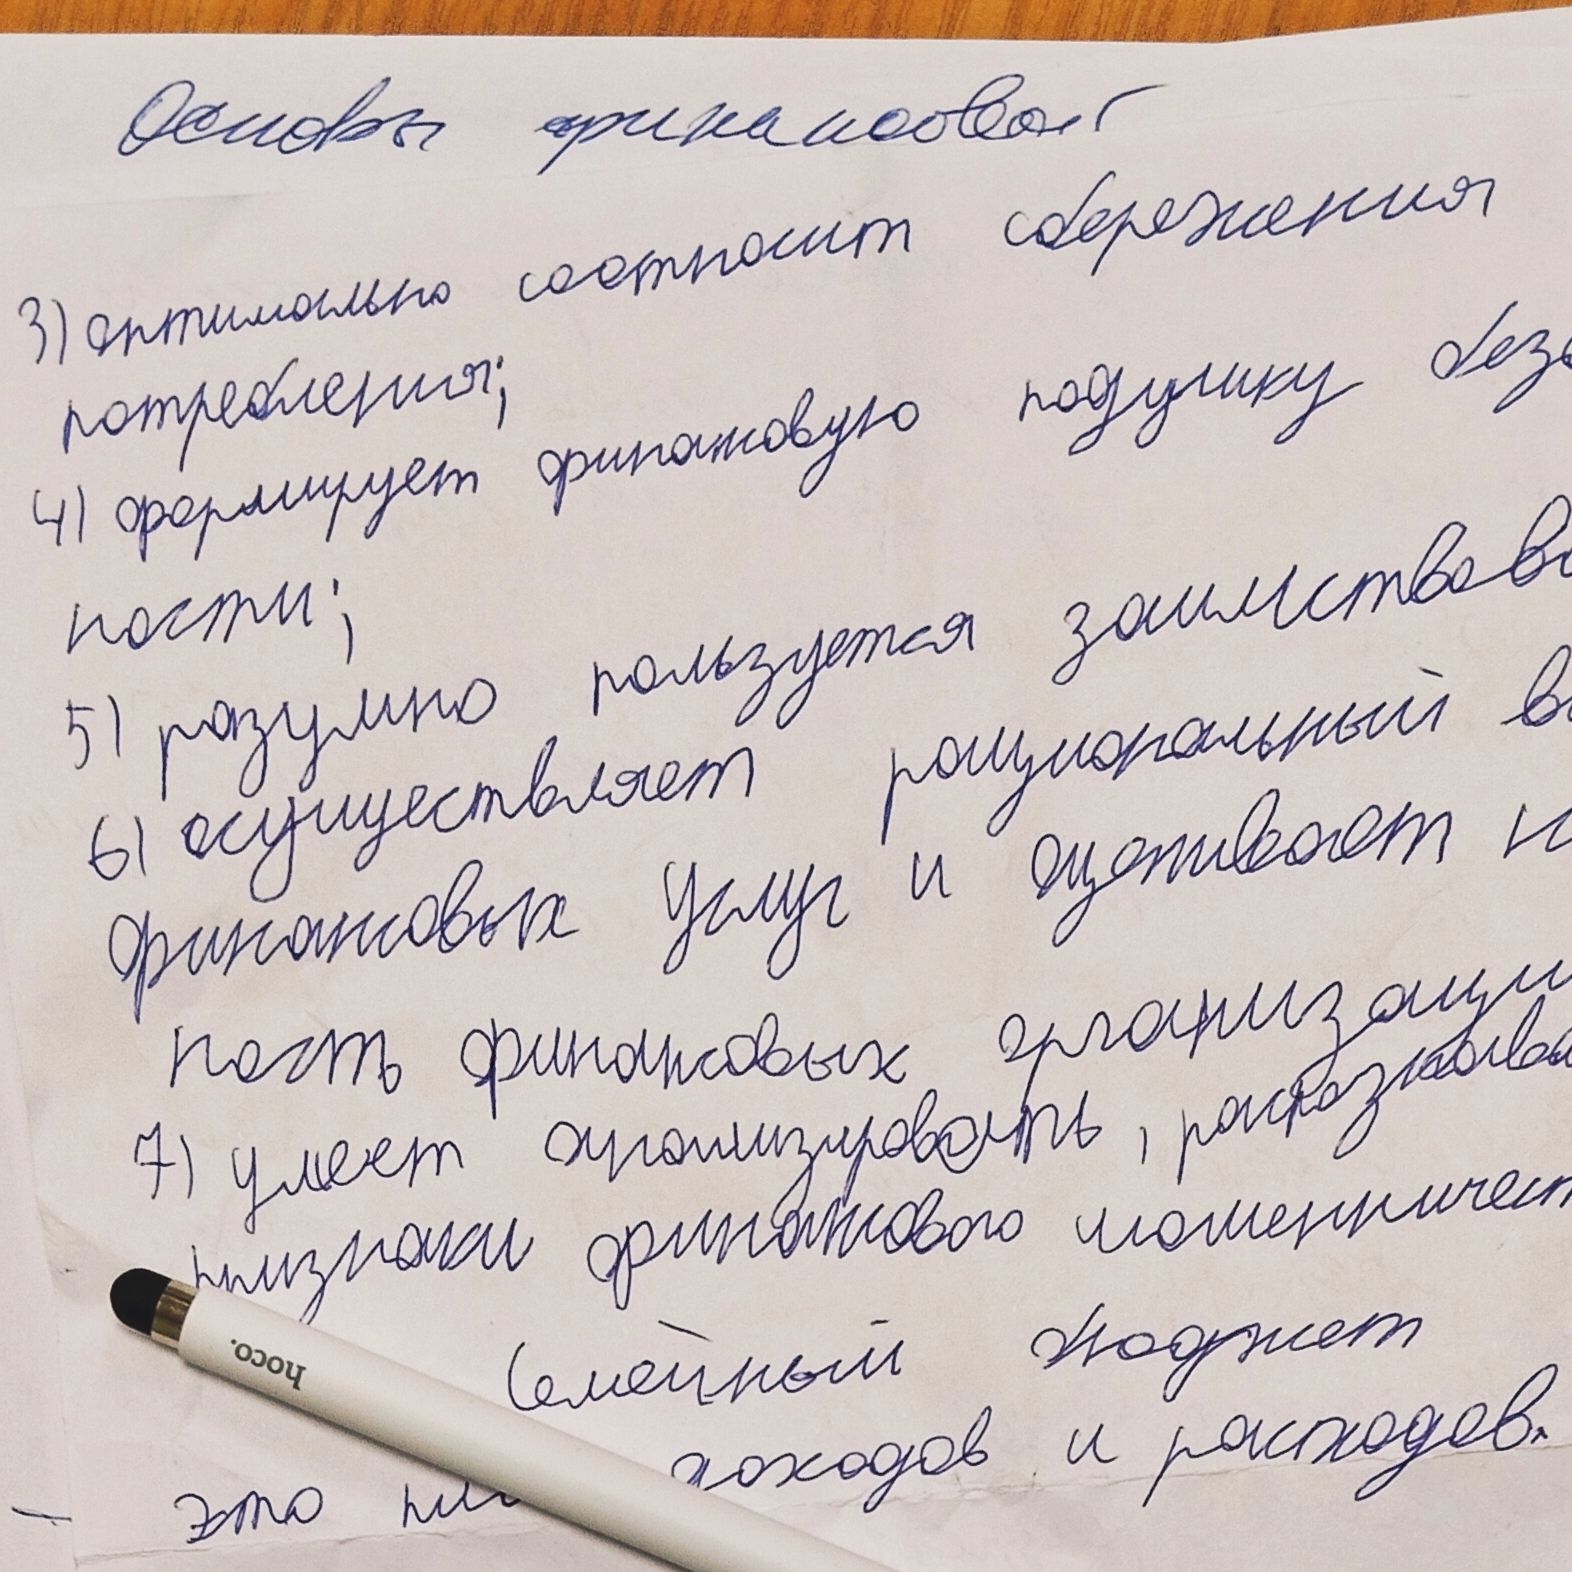 Основы финансовой
3) оптимально соотносит сбережения
потребления;
4) формирует финансовую подушку безо
ности;
5) разумно пользуется заимствова
6) осуществляет рациональный вы
финансовых услуг и оценивает н
ность финансовых организаци
7) умеет анализировать, распознава
признаки финансового мошенничест
Семейный бюджет
это доходов и расходов.
hoco.